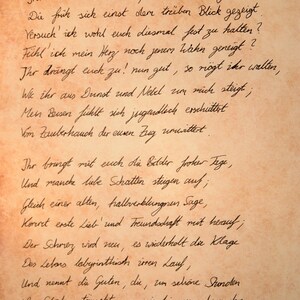 Die früh sich einst dem trüben Blick gezeigt
Versuch' ich wohl euch diesmal fest zu halten?
Fühl' ich mein Herz noch jenem Wahn geneigt?
Ihr drängt euch zu! nun gut, so mögt ihr walten,
Wie ihr aus Dunst und Nebel um mich steigt;
Mein Busen fühlt sich jugendlich erschüttert
Vom Zauberhauch der euren Zug umwittert
Ihr bringt mit euch die Bilder froher Tage,
Und manche liebe Schatten steigen auf;
Gleich einer alten, halbverklungnen Sage,
Kommt erste Lieb' und Freundschaft mit herauf;
Der Schmerz wird neu, es wiederholt die Klage
Des Lebens labyrinthisch irren Lauf,
Und nennt die Guten, die, um schöne Stunden